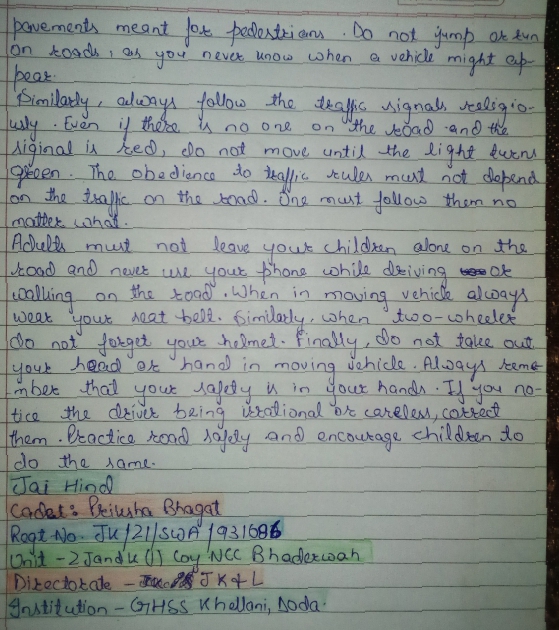 pavements meant for pedestrians. Do not jump or run
on roads, as you never know when a vehicle might ap-
pear.
Similarly, always follow the traffic signals religio-
usly. Even if there is no one on the road and the
siginal is red, do not move until the light turns
green. The obedience to traffic rules must not depend
on the traffic on the road. One must follow them no
matter what.
Adults must not leave your children alone on the
road and never use your phone while driving or
walking on the road. When in moving vehicle always
wear your seat belt. Similarly, when two-wheeler
do not forget your helmet. Finally, do not take out
your head or hand in moving vehicle. Always reme-
mber that your safety is in your hands. If you no-
tice the driver being irrational or careless, correct
them. Practice road safety and encourage children to
do the same.
Jai Hind
Cadet: Priusha Bhagat
Regt No. JK/21/SWA/931686
Unit - 2 Jand K (I) Coy NCC Bhaderwah
Directorate - JK & L
Institution - GHSS Khellani, Doda.